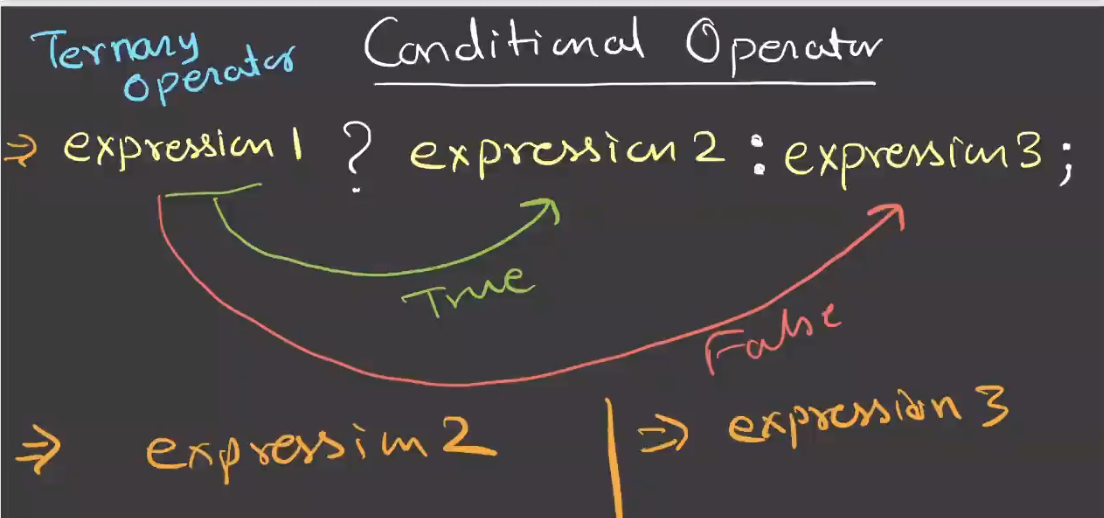 Ternary Operator
Conditional Operator
⇒ expression 1 ? expression 2 : expression 3 ;
True
False
⇒ expression 2 | ⇒ expression 3